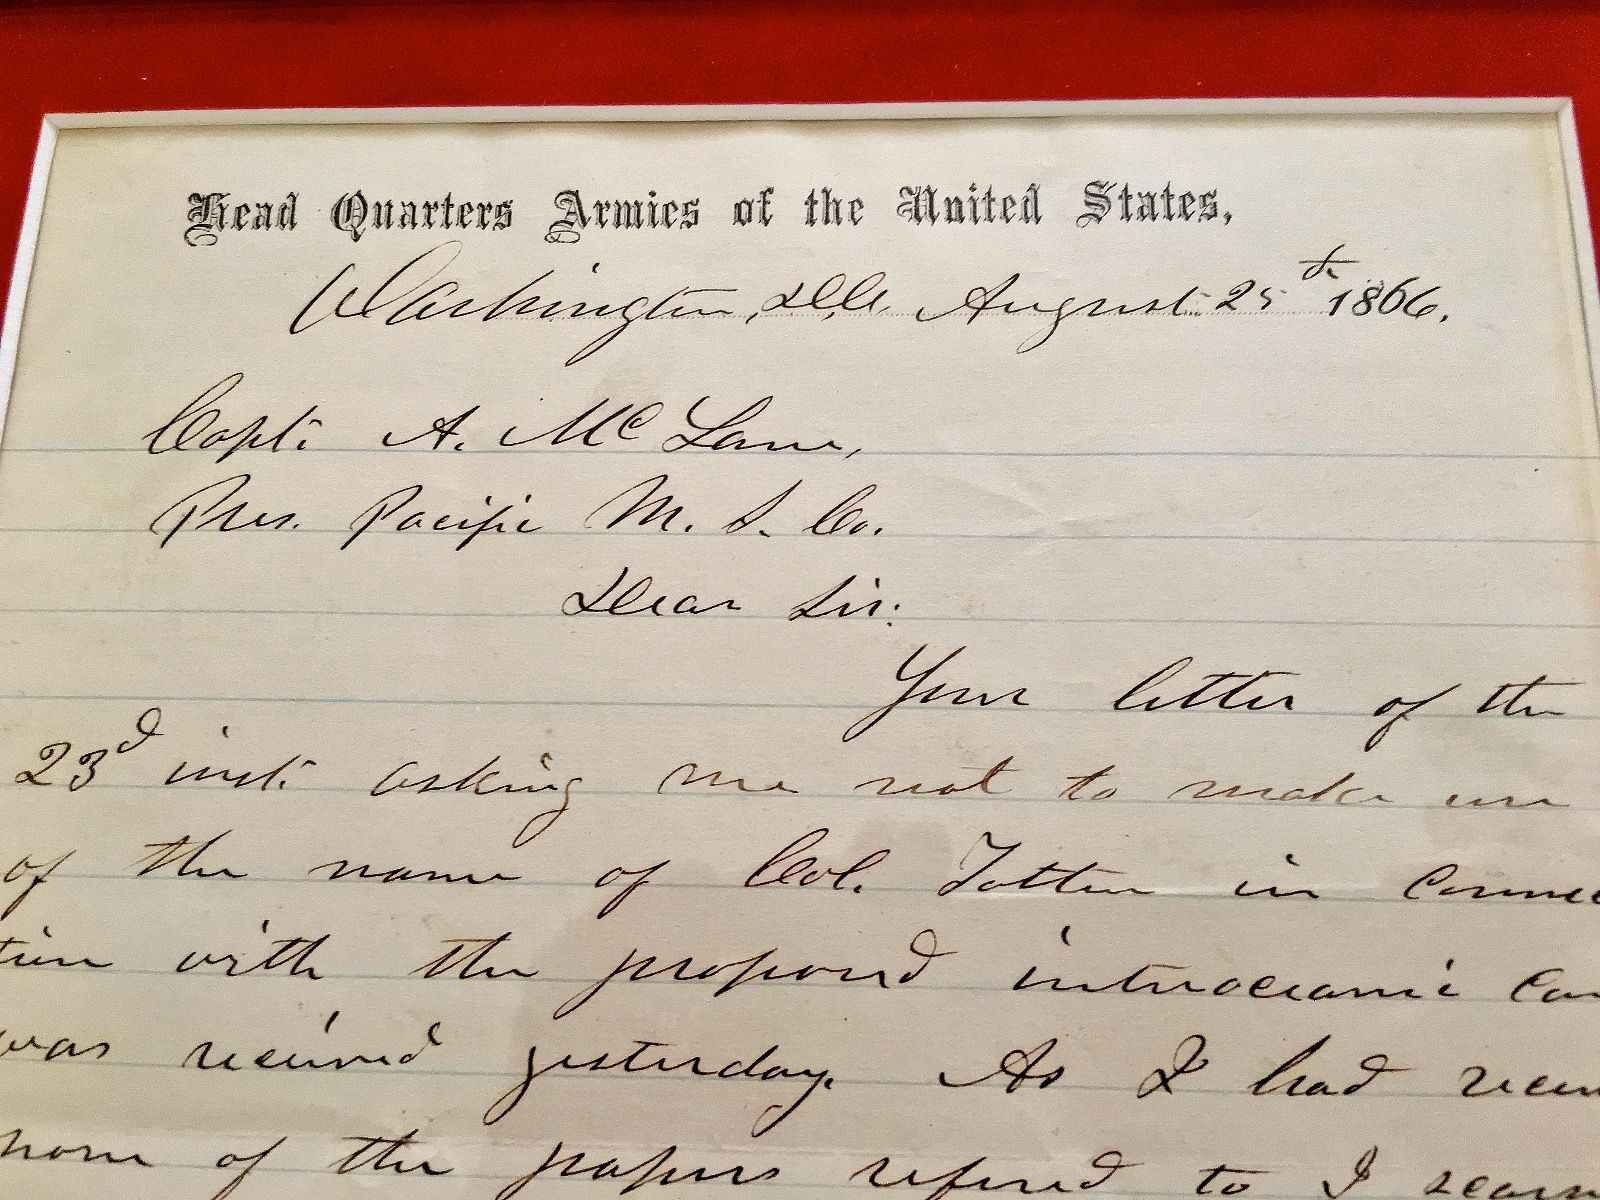 Head Quarters Armies of the United States,
Washington, D.C. August 25th 1866.
Capt. A. McLane,
Pres. Pacific M. S. Co.
Dear Sir:
Your letter of the
23d inst. asking me not to make use
of the name of Col. Totten in connec
tion with the proposed interoceanic
was received yesterday. As I had
none of the papers refered to I